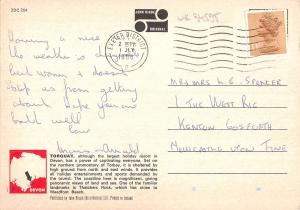 2DC 204
JOHN HINDE
ORIGINAL
EXETER DISTRICT
2 15 PM
1 JLY
1980
Having a nice
the weather is
but sunny & doesn't
stop us from getting
about hope you are
both well
love
Mavis & Arnold
MR & MRS L E SPENCER
1 THE WEST RIG
KENTON GOSFORTH
NEWCASTLE UPON TYNE
TORQUAY, although the largest holiday resort in
Devon, has a power of captivating everyone. Set on
the northern promontory of Torbay, it is sheltered by
high ground from north and east winds. It provides
all holiday entertainments and sports demanded by
the tourist. The coastline here is magnificent, giving
panoramic views of land and sea. One of the familiar
landmarks is Thatchers Rock, which lies close to
Meadfoot Beach.
DEVON
Published by John Hinde (Distributors) Ltd. Printed in Ireland